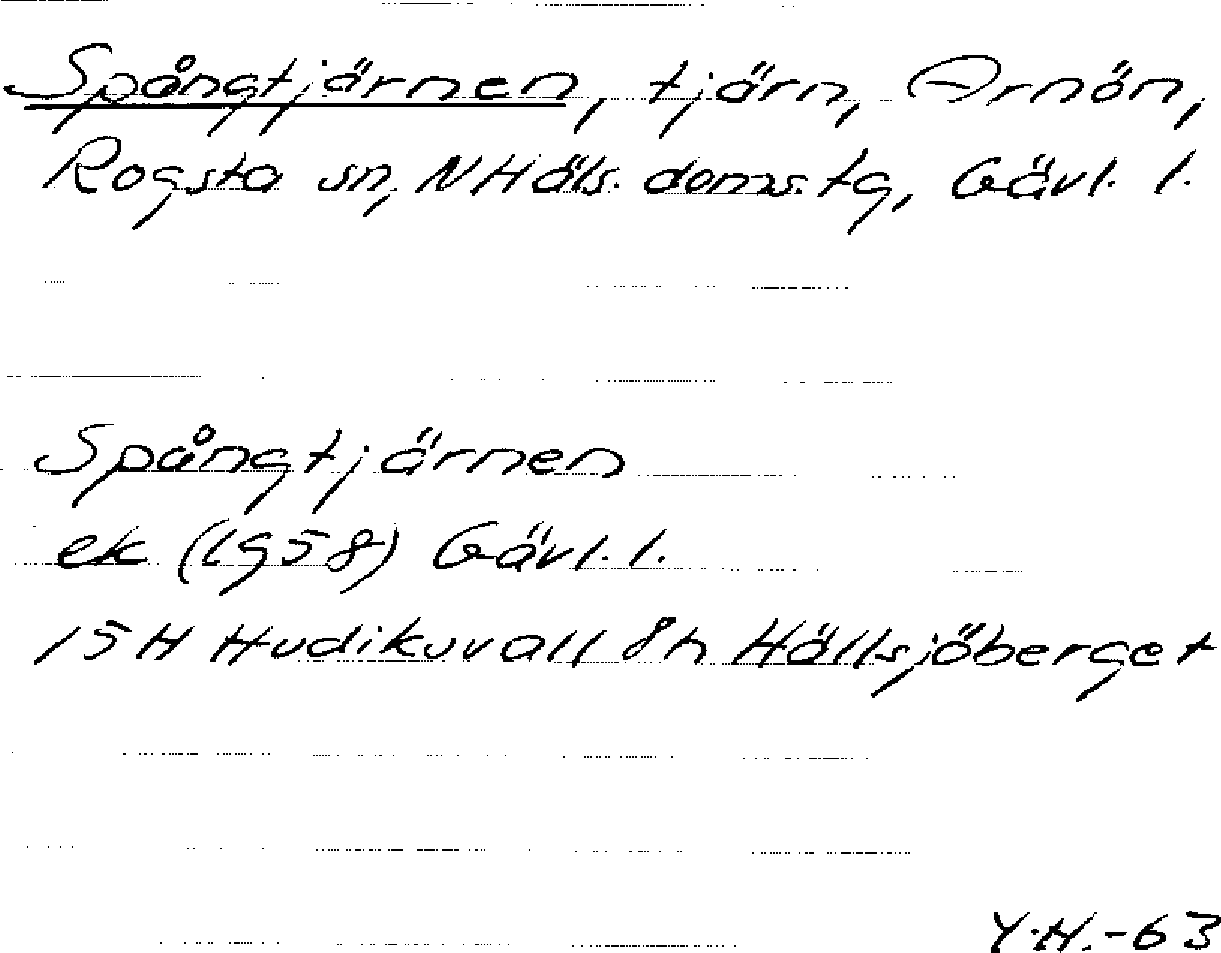 Spångtjärnen, tjärn, Arnön,
Rogsta sn, NHäls. doms. tg, Gävl. l.
Spångtjärnen
ek (1958) Gävl. l.
15H Hudikuvall 8h Hällsjöberget
Y.H.-63